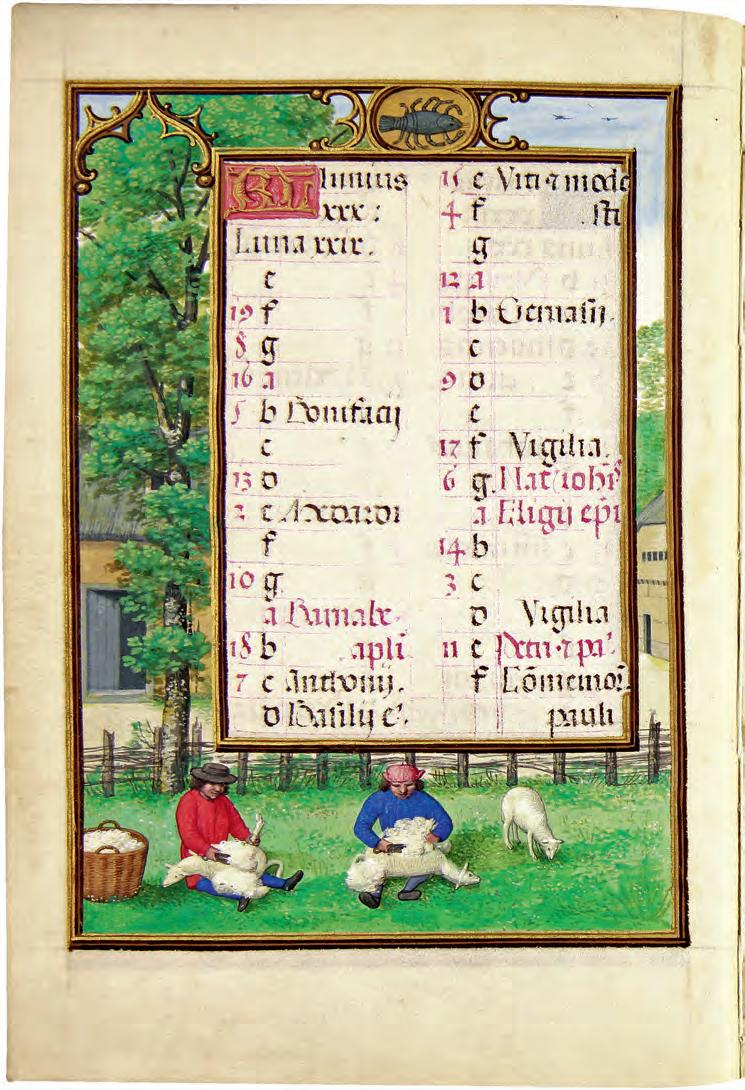 KL Iunius
xxx :
Luna xxix.
e
19 f
8 g
16 a
5 b Bonifacij
c
13 d
2 e Medardi
f
10 g
a Barnabe
18 b apli
7 c Anthonij.
d Basilij e͛.
15 e Viti ⁊ mode
4 f sti
g
12 a
1 b Geruasij.
c
9 d
e
17 f Vigilia.
6 g Nat͛ iohis
a Eligij epi
14 b
3 c
d Vigilia
11 e Petri ⁊ pa
f Cōmemor
pauli